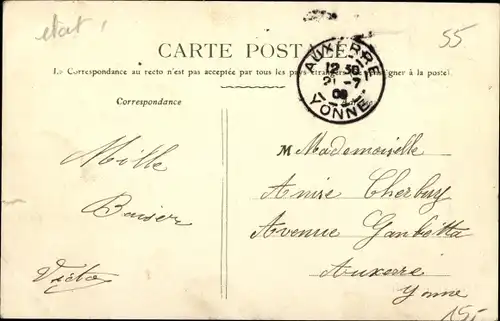 état
55
CARTE POSTALE
La Correspondance au recto n'est pas acceptée par tous les pays étrangers (Se renseigner à la poste).
AUXERRE
12 30
21-7
08
YONNE
Correspondance
Mille
Baiser
M Mademoiselle
Cherbuy
Avenue Gambetta
Auxerre
Yonne